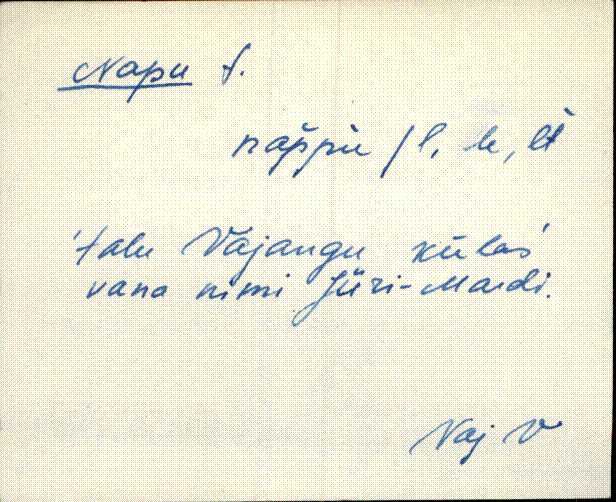 Napu t.
năppu /l, le, lt
'talu Vajangu külas'
vana nimi Jüri-Mardi.
Vaj V